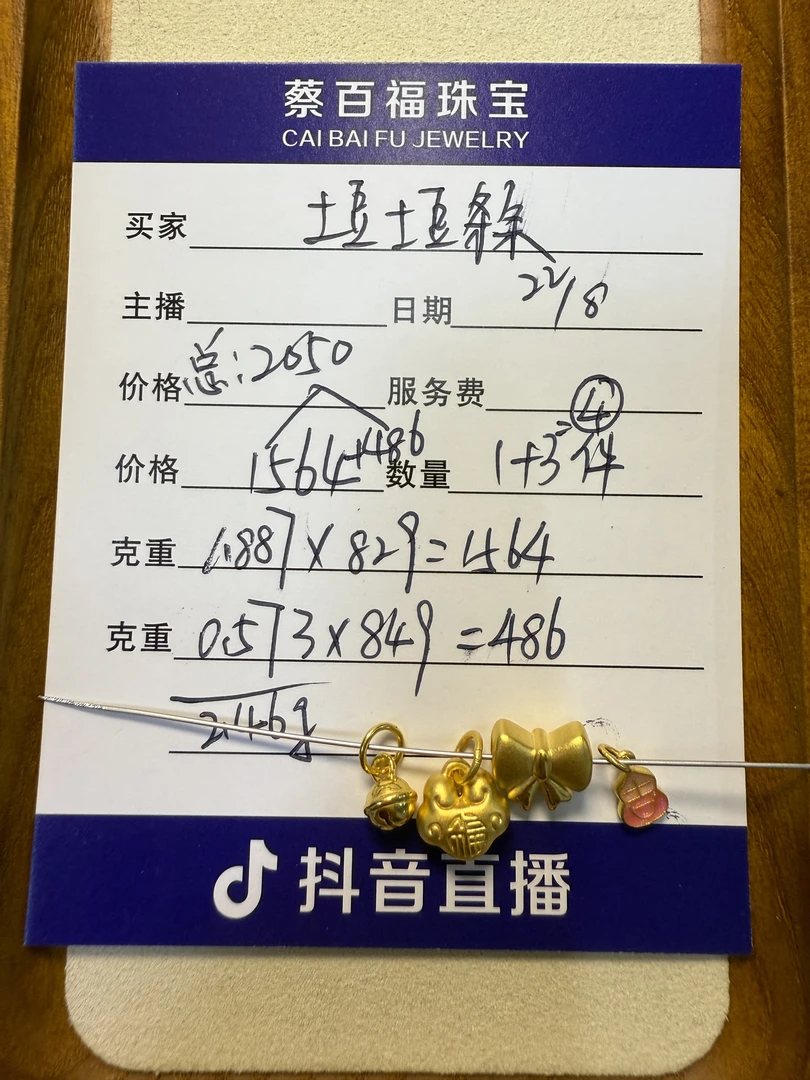 蔡百福珠宝
CAI BAI FU JEWELRY
买家 土豆土豆条
主播 日期 22/8
价格 总:2050 服务费
价格 1564+486 数量 1+3=④件
克重 1.887×829=1564
克重 0.573×849=486
2.46g
福
抖音直播